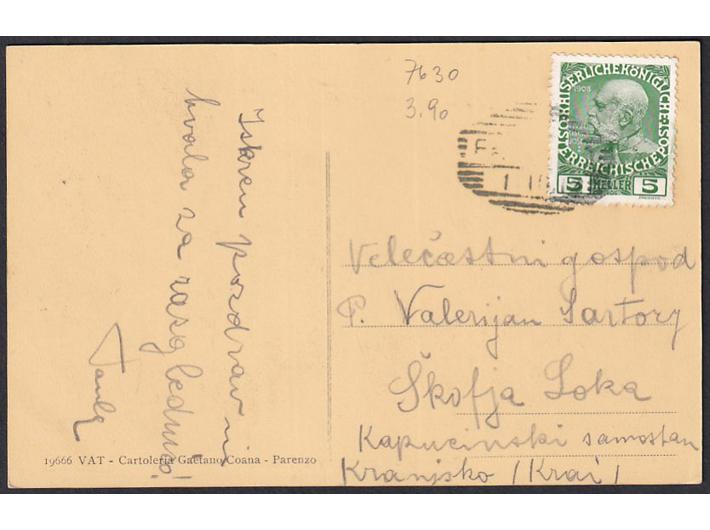 7630
3.90
Iskren pozdrav in
hvala za razglednico!
1908
KAISERLICHEKÖNIGLICHE
ÖSTERREICHISCHE POST
5 HELLER 5
Velečastni gospod
P. Valerijan Sartory
Škofja Loka
Kapucinski samostan
Kranjsko (Krai)
19666 VAT - Cartoleria Gaetano Coana - Parenzo